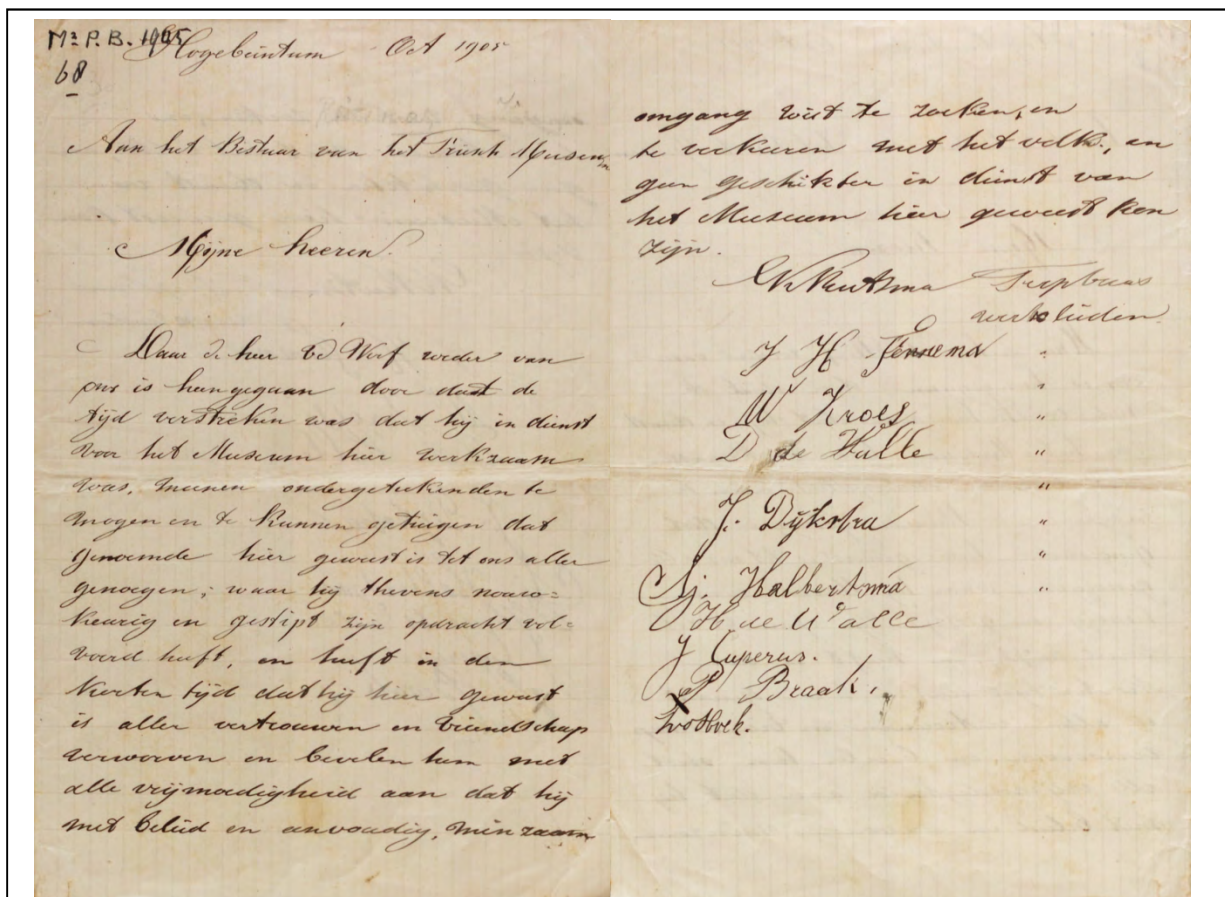 Mª P. B. 1905
68
Hogebeintum Oct 1905
Aan het Bestuur van het Friesch Museum
Mijne heeren.
Daar de heer vd Werf weder van
ons is heengegaan door dat de
tijd verstreken was dat hij in dienst
voor het Museum hier werkzaam
was, meenen ondergetekenden te
mogen en te kunnen getuigen dat
genoemde hier geweest is tot ons aller
genoegen; waar hij thevens nauw=
keurig en gestipt zijn opdracht vol=
voerd heeft, en heeft in den
korten tijd dat hij hier geweest
is aller vertrouwen en vriendschap
verworven en bevelen hem met
alle vrijmoedigheid aan dat hij
met beleid en envoudig, minzaam
omgang wist te zoeken, en
te verkeeren met het volk, en
geen geschikter in dienst van
het Museum hier geweest kon
zijn.
Terpbaas
werkluiden.
J H Jennema "
"
W Kroes "
D de Halle "
"
J. Dijkstra "
"
Sj. Halbertsma "
H de Walle
J Cuperus.
P Braak.